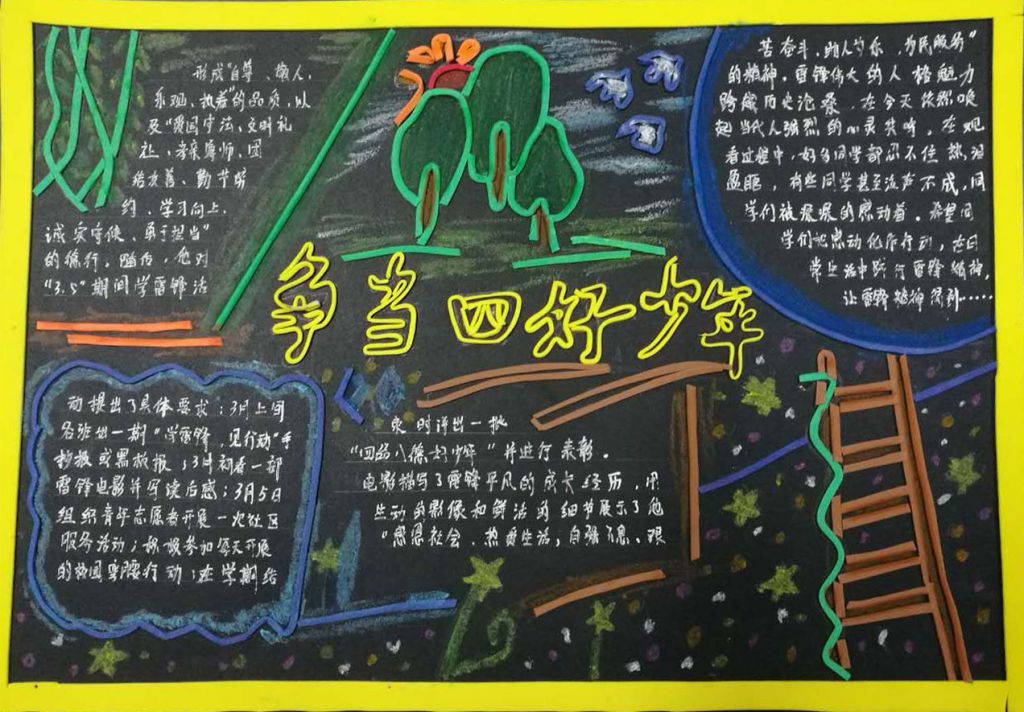 形成"自尊、敬人、
乐观、执着"的品质,以
及"爱国守法、文明礼
让、孝亲尊师、团
结友善、勤节
约、学习向上、
诚实守信、勇于担当"
的德行。随后,他对
"3.5"期间学雷锋活
争当四好少年
动提出了具体要求:3月上间
各班出一期"学雷锋,见行动"手
抄报或黑板报;3月初看一部
雷锋电影并写读后感;3月5日
组织青年志愿者开展一次社区
服务活动;积极参加每天开展
的校园零陪行动;在学期结
束时评出一批
"四好少年"并进行表彰。
电影描写了雷锋平凡的成长经历,用
生动的影像和鲜活的细节展示了他
"感恩社会、热爱生活,自强不息、艰
苦奋斗,助人为乐,为民服务"
的精神。雷锋伟大的人格魅力
跨越历史沧桑,在今天依然唤
起当代人强烈的心灵共鸣。在观
看过程中,好多同学都忍不住热泪
盈眶,有些同学甚至泣声不成,同
学们被深深的感动着。希望同
学们把感动化作行动,在日
常生活中践行雷锋精神,
让雷锋精神得到……